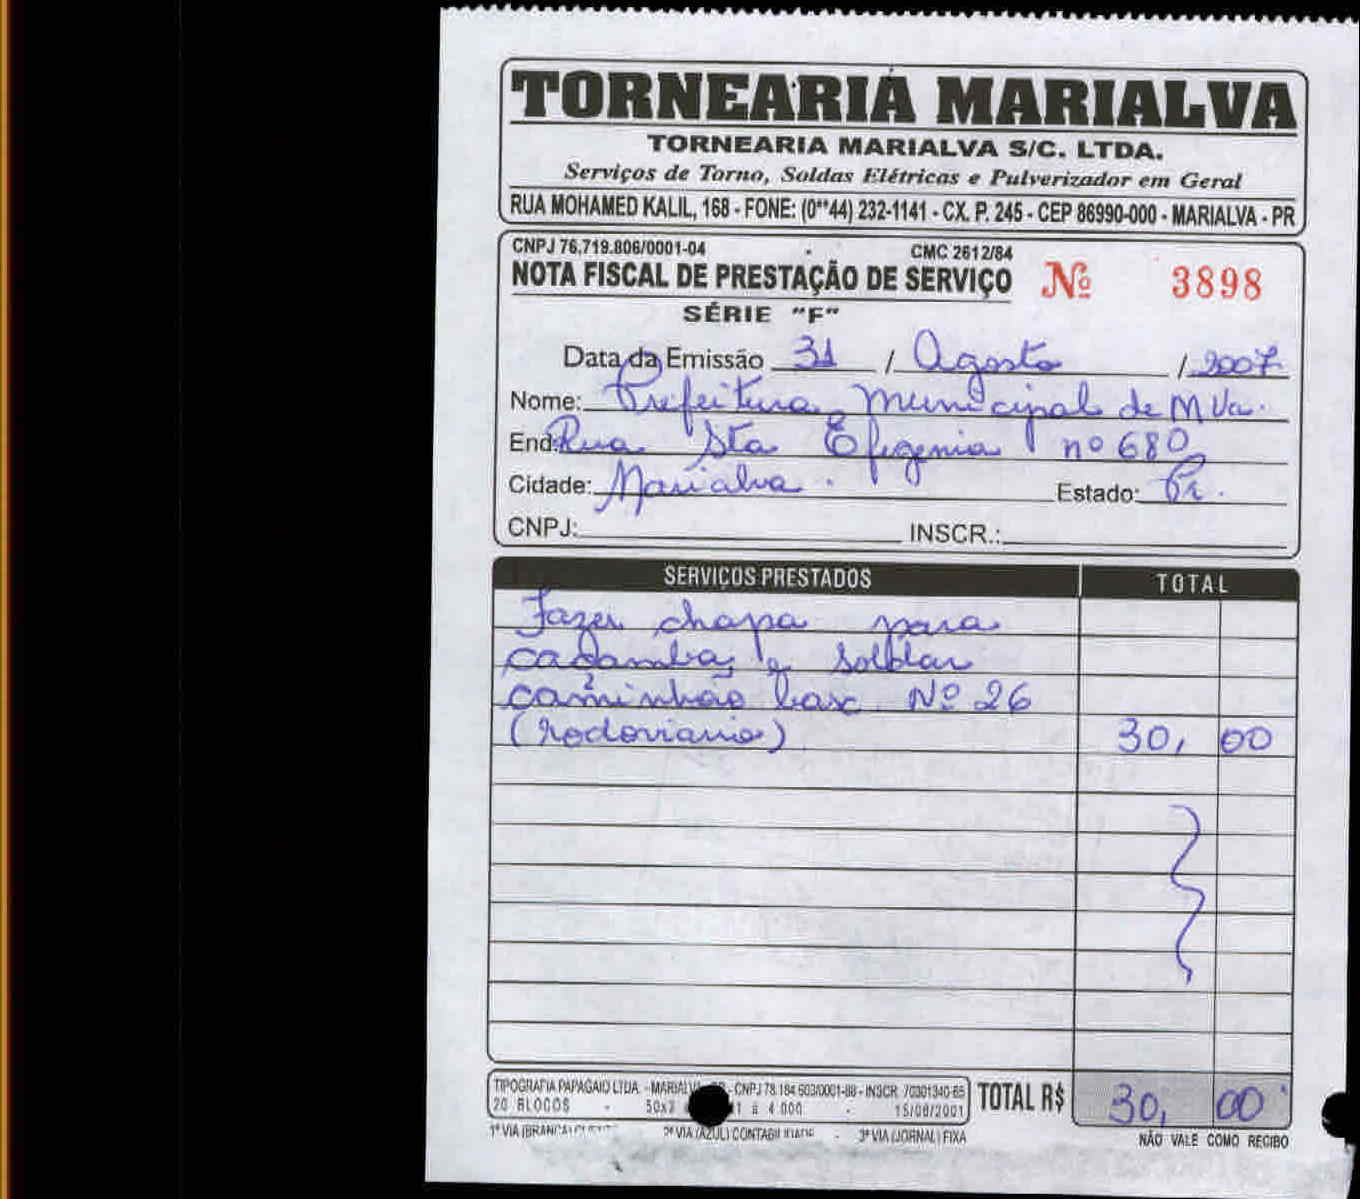 TORNEARIA MARIALVA
TORNEARIA MARIALVA S/C. LTDA.
Serviços de Torno, Soldas Elétricas e Pulverizador em Geral
RUA MOHAMED KALIL, 168 - FONE: (0**44) 232-1141 - CX. P. 245 - CEP 86990-000 - MARIALVA - PR
CNPJ 76.719.806/0001-04 CMC 2612/84
NOTA FISCAL DE PRESTAÇÃO DE SERVIÇO Nº 3898
SÉRIE "F"
Data da Emissão 31 / Agosto / 2007
Nome: Prefeitura Municipal de M Va.
End. Rua Sta Efigenia nº 680
Cidade: Marialva. Estado: Pr.
CNPJ: INSCR.:
SERVIÇOS PRESTADOS TOTAL
Fazer chapa para
caçamba, e soldar
caminhão basc. Nº 26
(rodoviario) 30, 00
TIPOGRAFIA PAPAGAIO LTDA. - MARIALVA - CNPJ 78.184.503/0001-88 - INSCR.
20 BLOCOS - 50x3 a 4.000 - 15/08/2001
TOTAL R$ 30, 00
1ª VIA (BRANCA) 2ª VIA (AZUL) CONTABILIDADE - 3ª VIA (JORNAL) FIXA
NÃO VALE COMO RECIBO